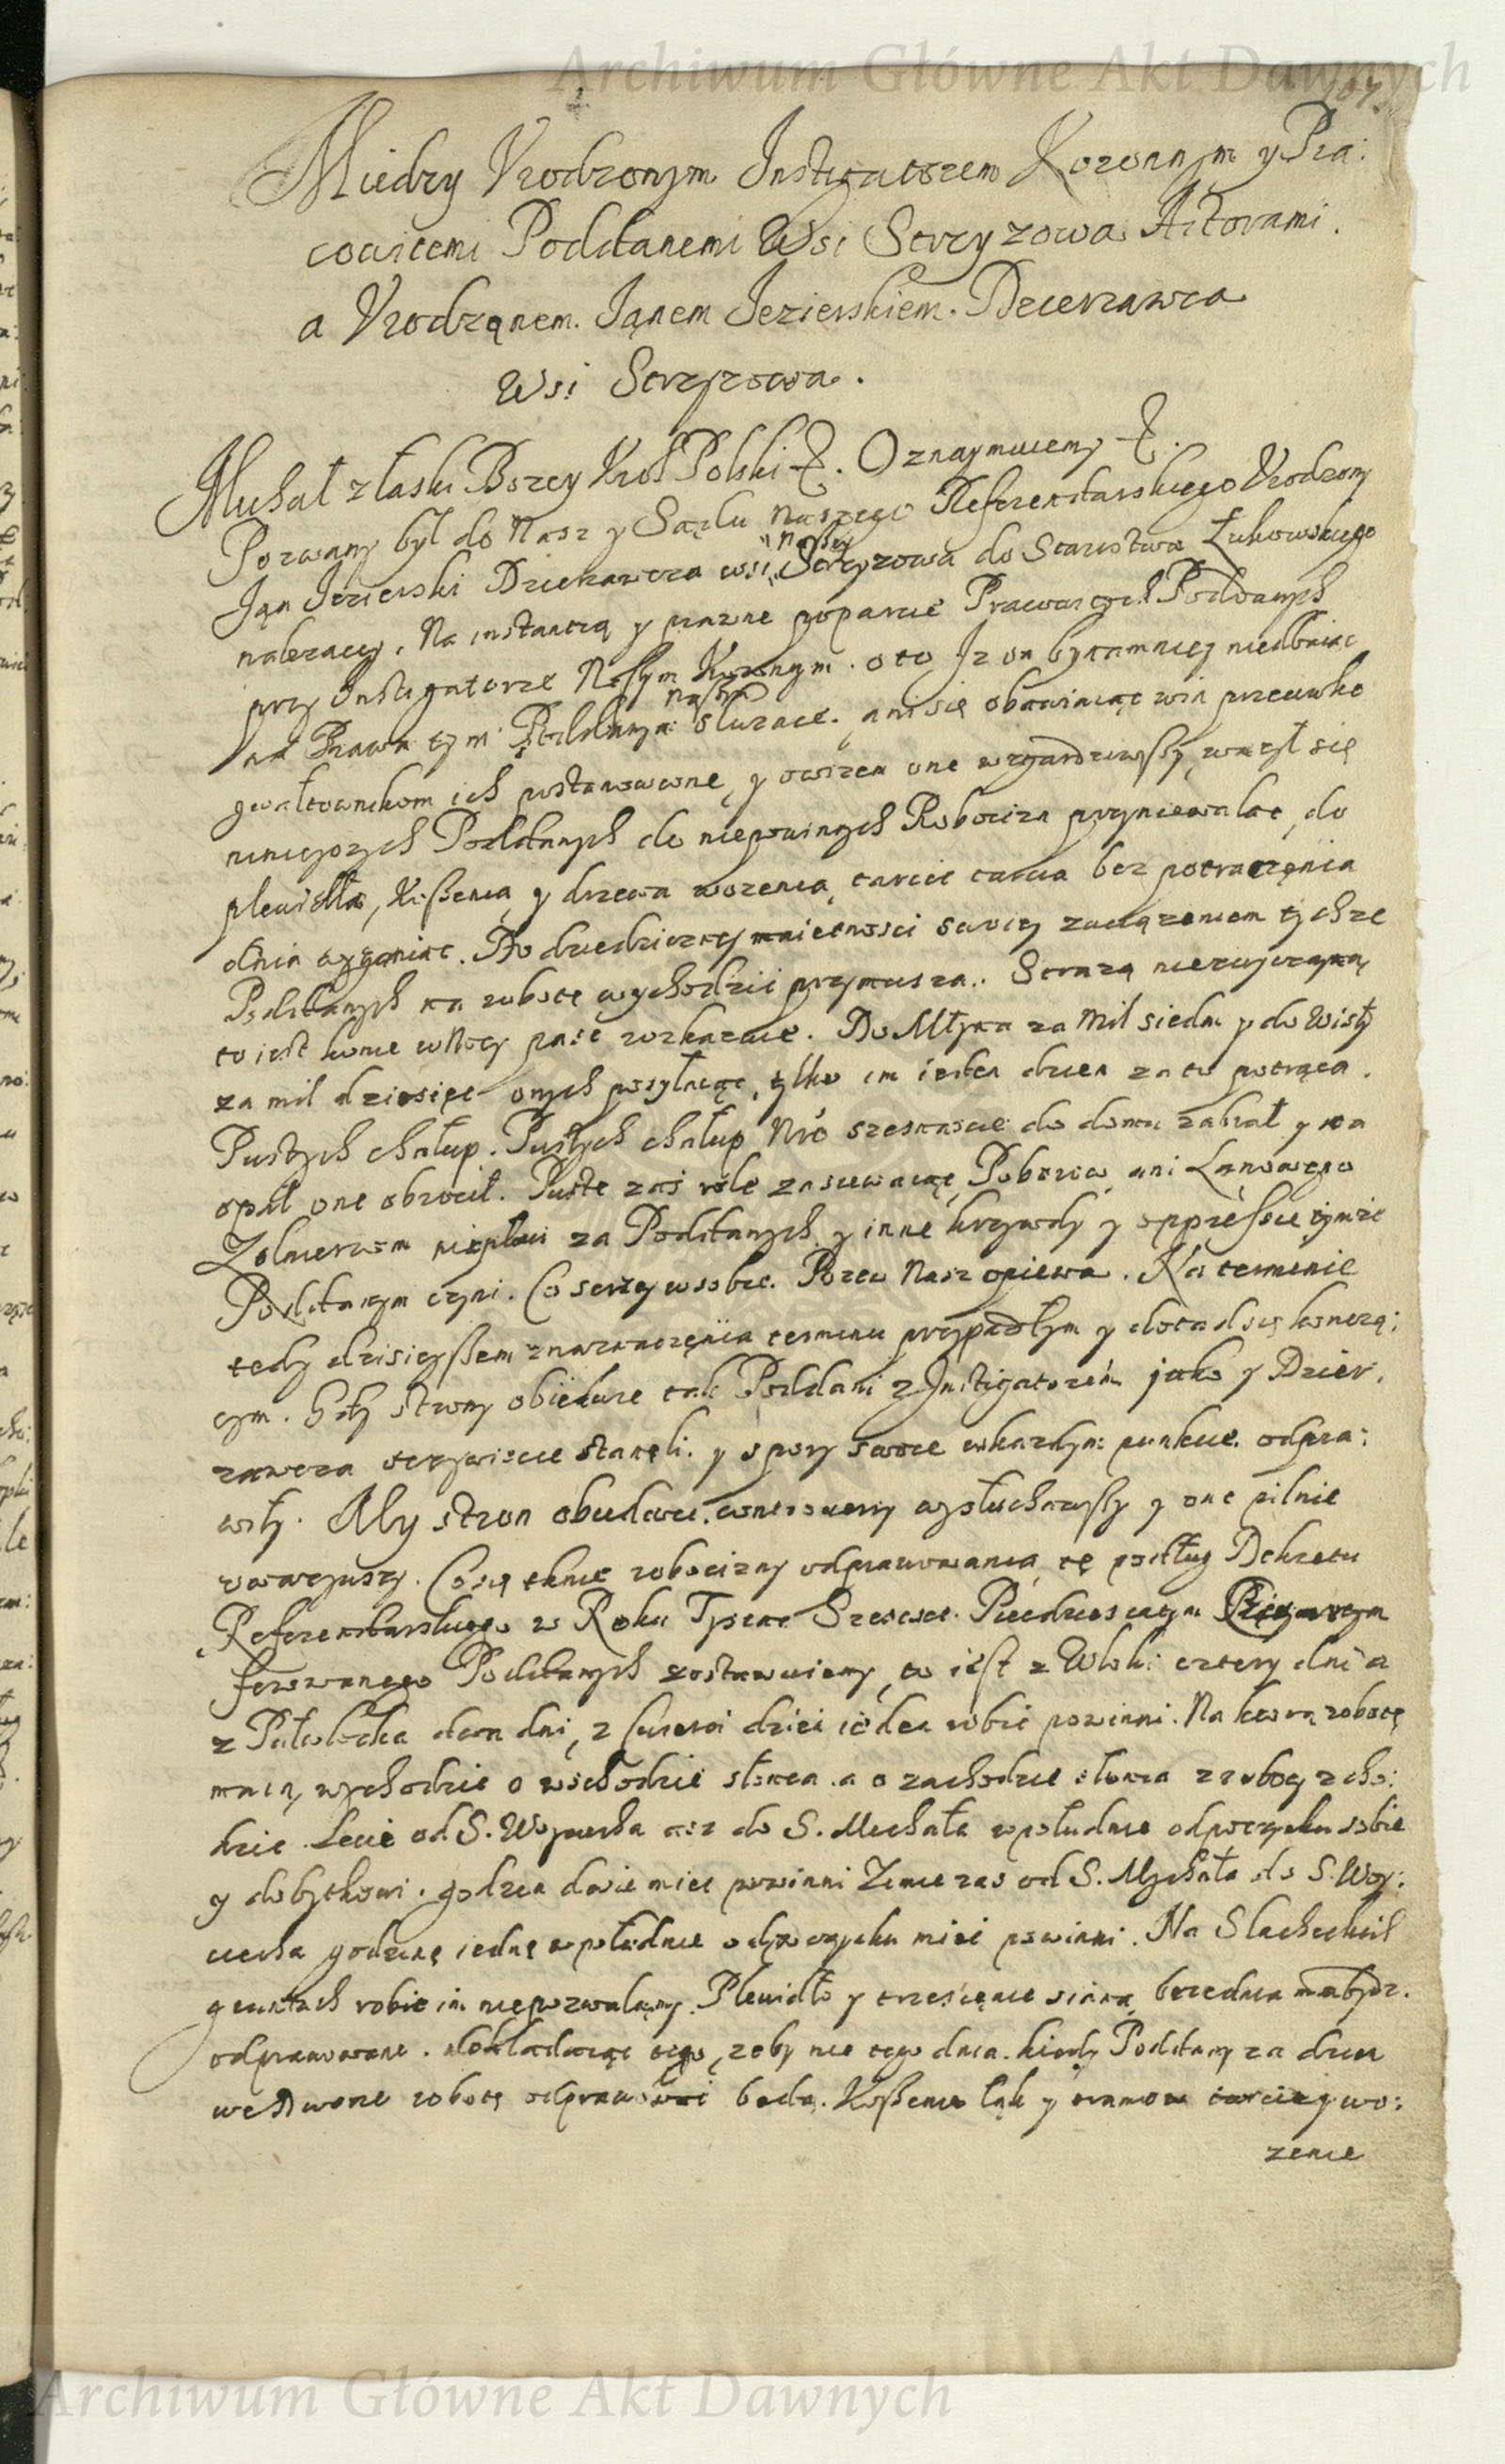 Archiwum Główne Akt Dawnych
107
Miedzy Vrodzonym Instigatorem Koronnym y Pra:
cowitemi Poddanemi Wsi Strzyzowa Aktorami.
a Vrodzonem. Janem Jezierskiem. Dzierzawca
Wsi Strzyzowa.
Michał z łaski Bozey Krol Polski &. Oznaymuiemy &.
Pozwany był do Nasz y Sądu Naszego Referendarskiego Vrodzony
Jan Jezierski Dzierzawca wsi Naszey Strzyzowa do Starostwa Łukowskiego
nalezacey. Na instantią y prawne poparcie Pracowitych Poddanych
przy Instigatorze Naszym Koronnym. oto Iz on bynamniey niedbaiąc
na Prawa tym Poddanym Naszym słuzące. ani się obawiaiąc win przeciwko
gwałtownikom ich postanowione, y owszem one wzgardziwszy, wazył się
ninieyszych Poddanych do niepowinnych Robocizn przyniewalać, do
plewidła, Koszenia, y drzewa wozenia, tarcic tarcia bez potrączenia
dnia wyganiać. Do dziedziczney maietności swoiey zaciązeniem tychze
Poddanych na robotę wychodzić przymusza. Straza niezwyczayną
to iest konie w Nocy paść rozkazuie. Do Młyna za mil siedm y do Wisły
za mil dziesięć onych posyłaiąc, tylko im ieden dzien za to potrąca.
Pustych chałup. Pustych chałup Nro szesnascie do domu zabrał y na
opał one obrocił. Puste zaś role zasiewaiąc, Poborow, ani Łanowego
Zołnierzom niepłaci za Poddanych y inne krzywdy y oppressie tymze
Poddanym czyni. Co szerzey w sobie. Pozew Nasz opiewa. Na terminie
tedy dzisieyszem z naznaczenia terminu przypadłym y dotad się konczą:
cym. Gdy strony obiedwie tak Poddani z Instigatorem jako y Dzier.
zawca oczywiscie stanęli. y spory swoie w kazdym punkcie. odpra:
wiły. My stron obudwu. controwersiy wysłuchawszy y one pilnie
uwazywszy. Co się tknie robocizny odprawowania, tę podług Dekretu
Referendarskiego w Roku Tysiąc Szescset. Piędziesiątym Piątym
ferowanego Poddanych zostawuiemy, to iest z Włoki cztery dni a
z Pułwłoczka dwa dni, z Cwierci dzien ieden robic powinni. Na ktorą robotę
maią, wychodzic o wschodzie słonca. a o zachodzie słonca z roboty zcho:
dzic. Lecie od S. Woyciecha asz do S. Michała w południe odpoczynku sobie
y dobytkowi. godzin dwie miec powinni Zimie zas od S. Mychała do S. Woy:
ciecha godzinę iednę w południe odpoczynku mieć powinni. Na Slacheckich
gruntach robic im niepozwalamy. Plewidło y trzesienie siana, bez dnia ma bydz.
odprawowane. dokładaiąc tego, zeby nie tego dnia. kiedy Poddany za dzien
robotę odprawowac będą. Koszenie łąk y tarcic y wo:
zenie
Archiwum Główne Akt Dawnych